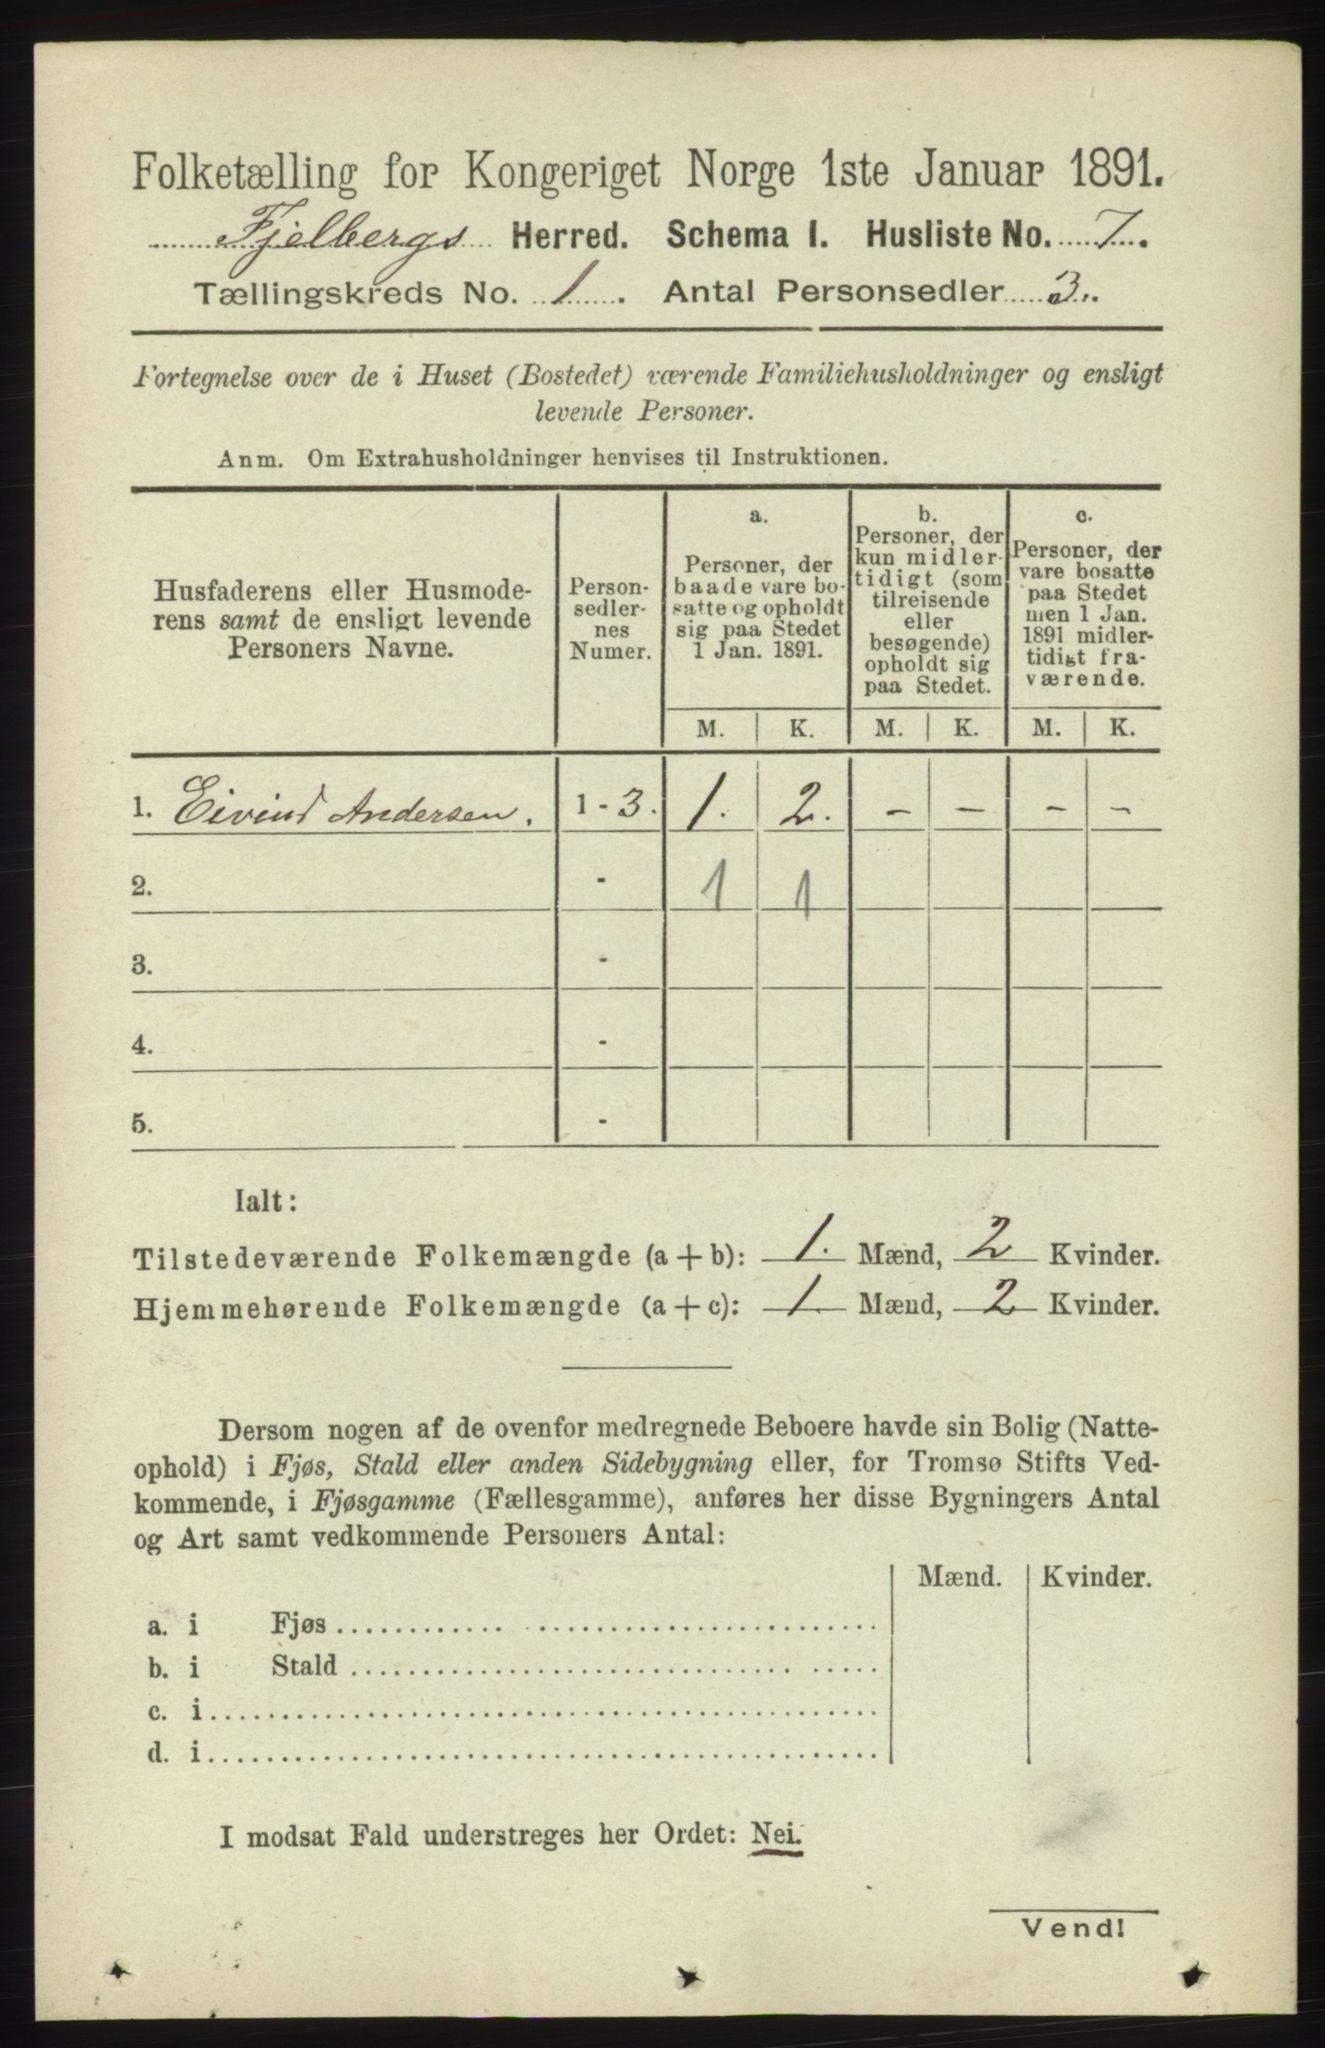 Folketælling for Kongeriget Norge 1ste Januar 1891.
Fjelbergs Herred. Schema I. Husliste No. 7.
Tællingskreds No. 1. Antal Personsedler 3.
Fortegnelse over de i Huset (Bostedet) værende Familiehusholdninger og ensligt
levende Personer.
Anm. Om Extrahusholdninger henvises til Instruktionen.
Husfaderens eller Husmode-
rens samt de ensligt levende
Personers Navne.
Person-
sedler-
nes
Numer.
a.
Personer, der
baade vare bo-
satte og opholdt
sig paa Stedet
1 Jan. 1891.
b.
Personer, der
kun midler-
tidigt (som
tilreisende
eller
besøgende)
opholdt sig
paa Stedet.
c.
Personer, der
vare bosatte
paa Stedet
men 1 Jan.
1891 midler-
tidigt fra-
værende.
M. K. M. K. M. K.
1. Eivind Andersen. 1 - 3. 1. 2. - - - -
2. - 1 1
3. -
4. -
5. -
Ialt:
Tilstedeværende Folkemængde (a + b): 1. Mænd, 2 Kvinder.
Hjemmehørende Folkemængde (a + c): 1. Mænd, 2 Kvinder.
Dersom nogen af de ovenfor medregnede Beboere havde sin Bolig (Natte-
ophold) i Fjøs, Stald eller anden Sidebygning eller, for Tromsø Stifts Ved-
kommende, i Fjøsgamme (Fællesgamme), anføres her disse Bygningers Antal
og Art samt vedkommende Personers Antal:
Mænd. Kvinder.
a. i Fjøs
b. i Stald
c. i
d. i
I modsat Fald understreges her Ordet: Nei.
Vend!